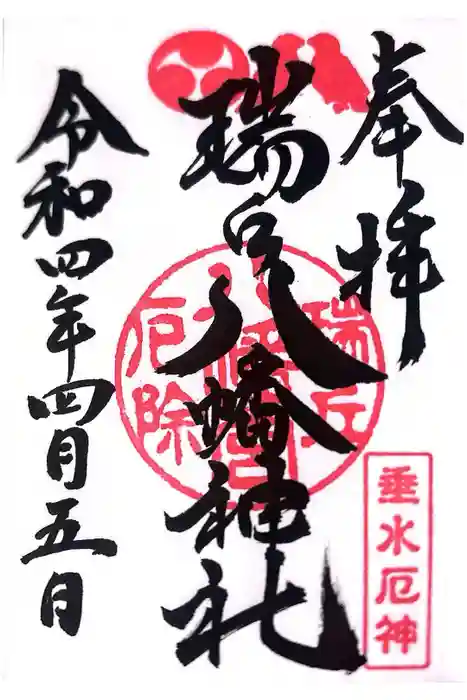 奉拝
瑞丘八幡神社
瑞丘
八幡宮
厄除
垂水厄神
令和四年四月五日